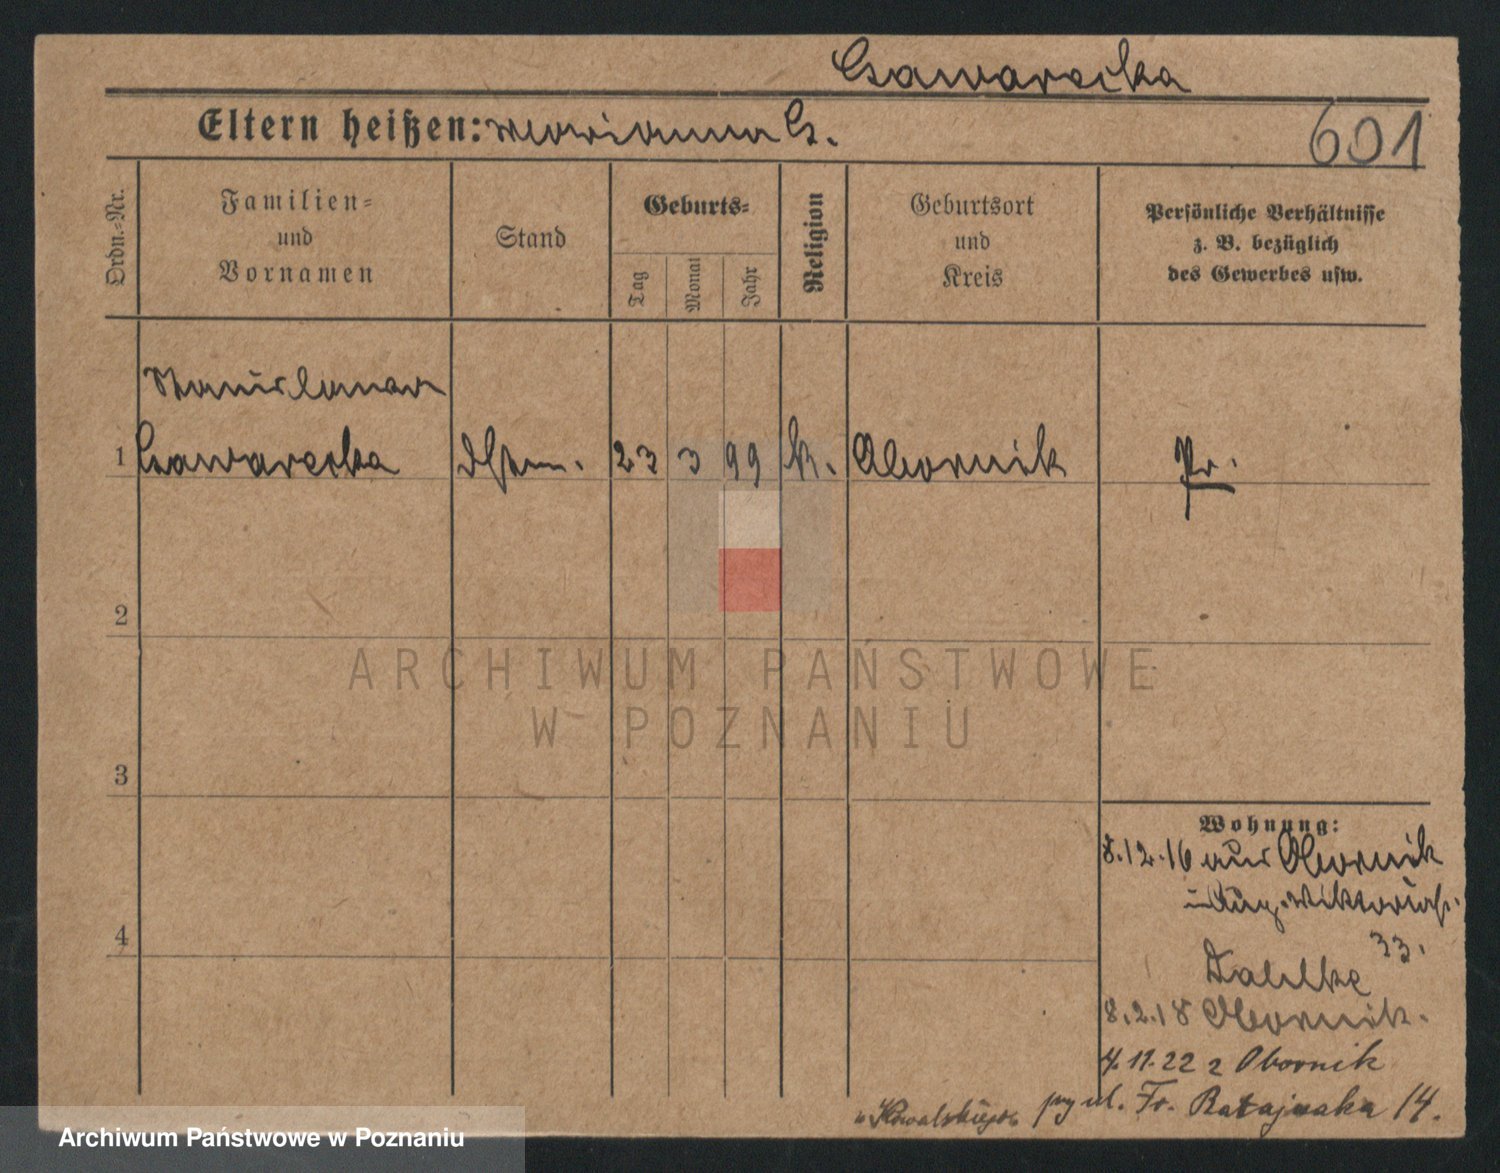 Czawarecka
Eltern heißen: Marianna Cz.
601
Ordn.-Nr.
Familien-
und
Vornamen
Stand
Geburts-
Tag
Monat
Jahr
Religion
Geburtsort
und
Kreis
Persönliche Verhältnisse
z. B. bezüglich
des Gewerbes usw.
Stanislawa
1 Czawarecka 23 3 99 k. Obornik Pr.
2
ARCHIWUM PAŃSTWOWE
W POZNANIU
3
Wohnung:
8.12.16 aus Obornik
Aug. Viktoriastr.
33.
4
Dahlke
8.2.18 Obornik.
4.11.22 z Obornik
u Kowalskiego przy ul. Fr. Ratajczaka 14.
Archiwum Państwowe w Poznaniu